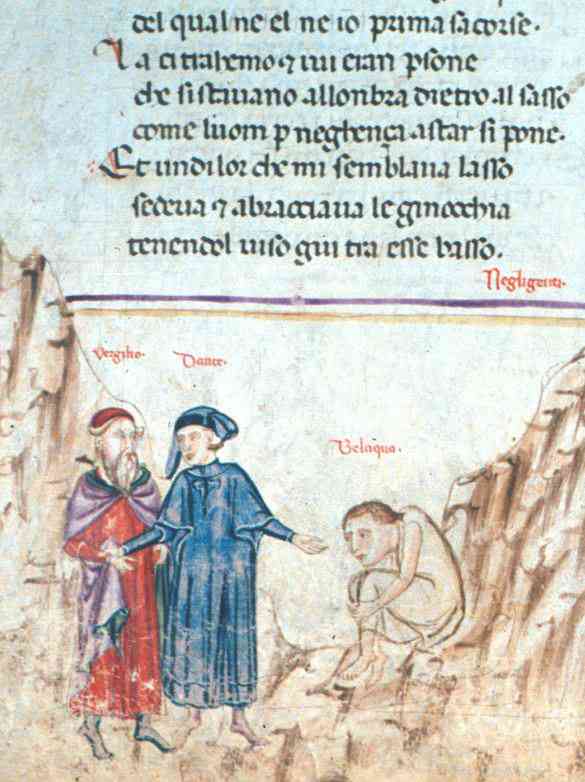 del qual ne el ne io prima sacorse.
La ci trahemo ⁊ iui eran psone
che si stauano allonbra dietro al sasso
come luom p neghença astar si pone.
Et un di lor che mi semblaua lasso
sedeua ⁊ abracciaua le ginocchia
tenendol uiso giu tra esse basso.
Negligenti.
Vergilio.
Dante.
Belaqua.